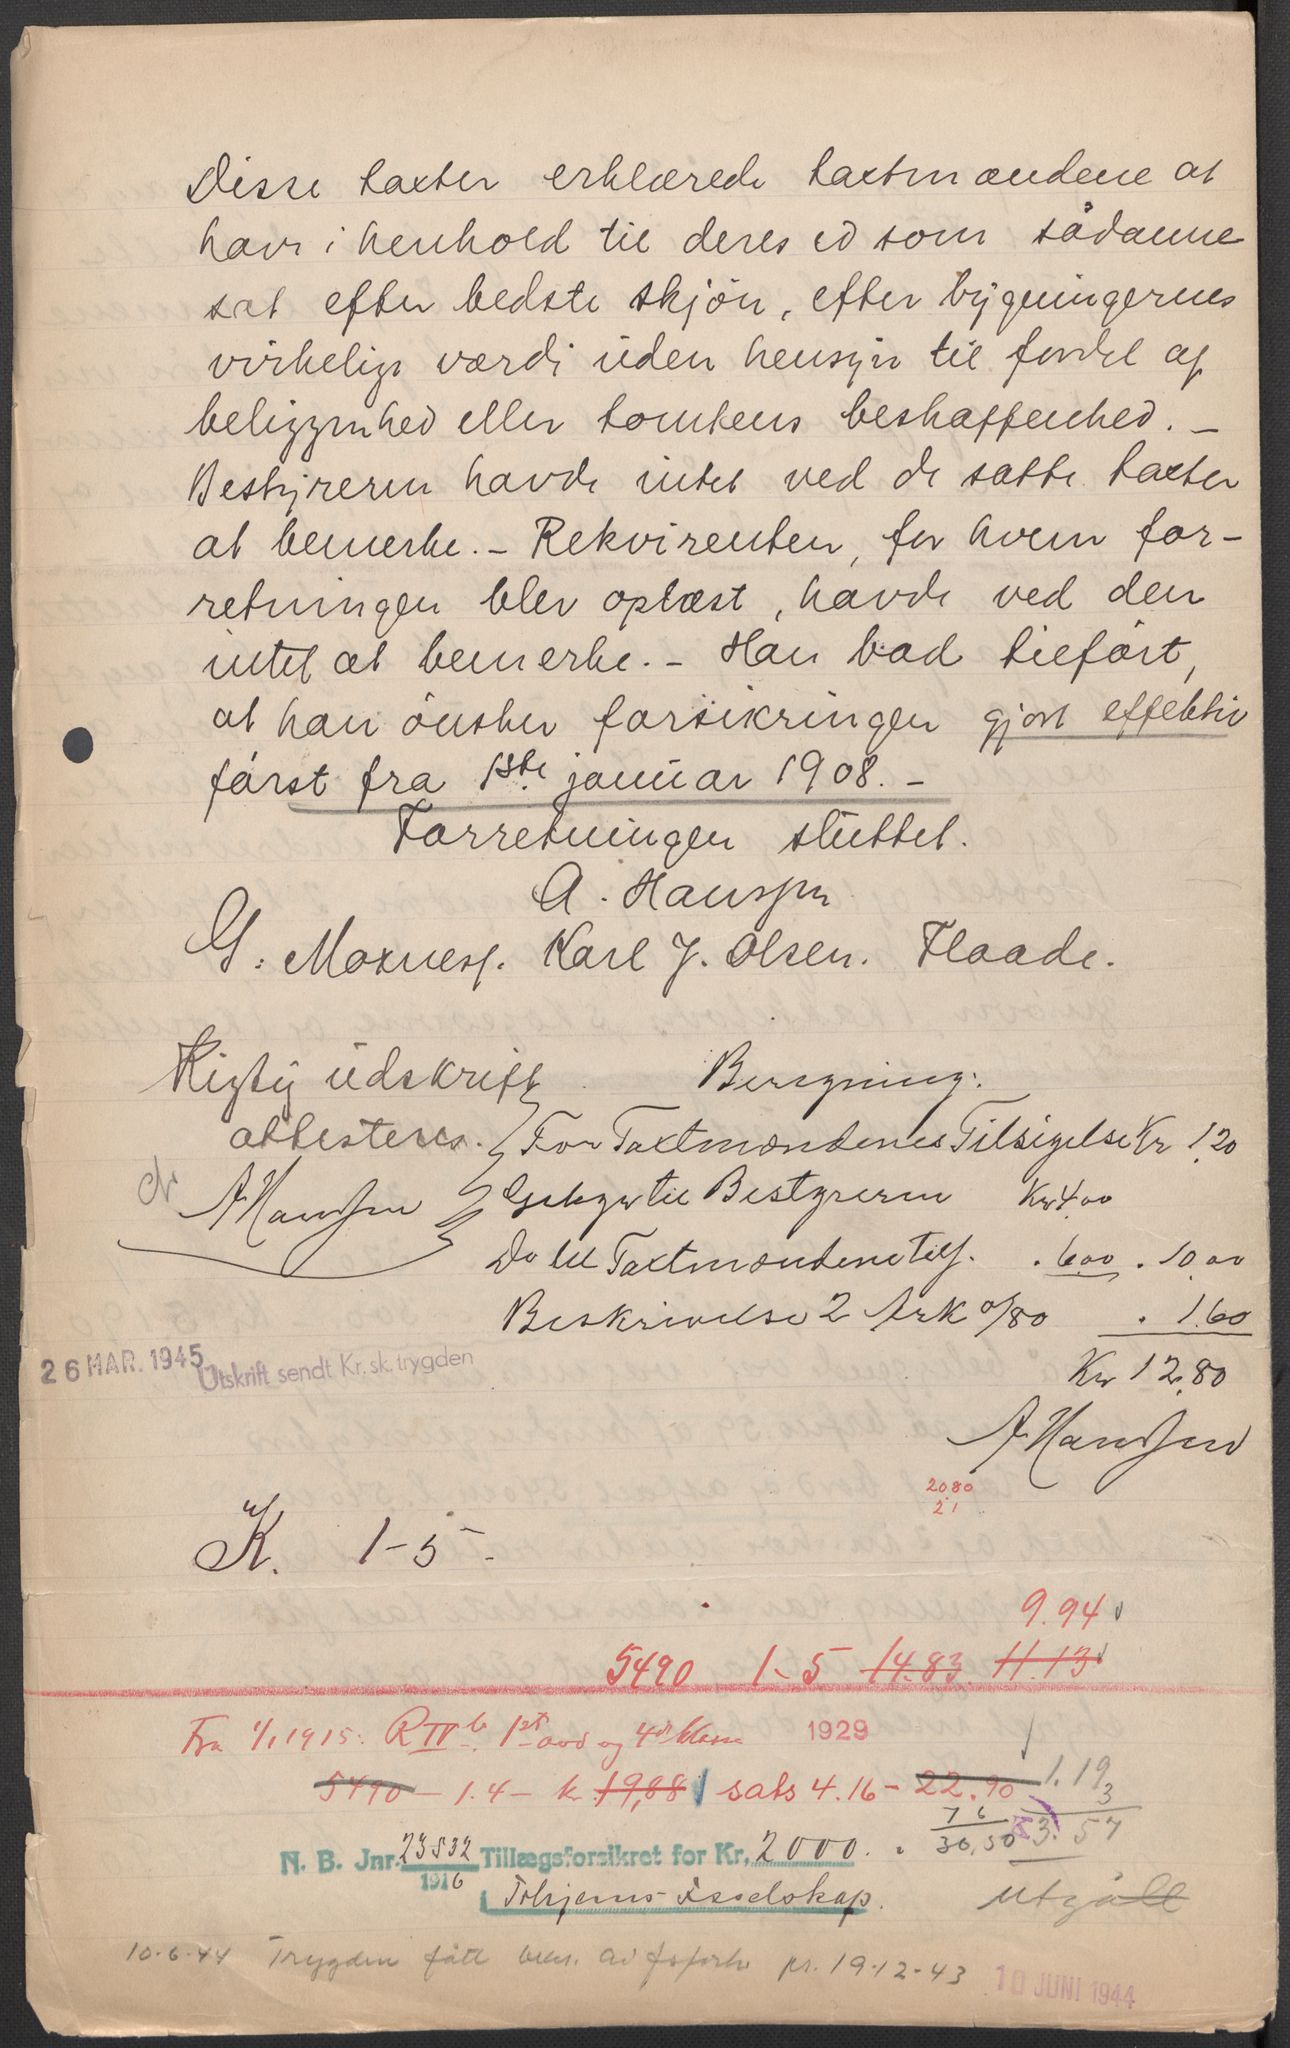 Disse taxter erklærede taxtmændene at
have i henhold til deres ed som sådanne
sat efter bedste skjön, efter bygningernes
virkelige værdi uden hensyn til fordel af
beliggenhed eller tomtens beskaffenhed. –
Bestyreren havde intet ved de satte taxter
at bemerke. – Rekvirenten, for hvem for-
retningen blev oplæst, havde ved den
intet at bemerke. – Han bad tilfört,
at han önsker forsikringen gjort effektiv
först fra 1ste januar 1908. –
Forretningen sluttet.
A. Hanssen
G. Moxness. Karl J. Olsen. Flaade.
Rigtig udskrift
attesteres.
A Hanssen
Beregning:
For Taxtmændenes Tilsigelse Kr 1.20
Gebyr til Bestyreren Kr 4.00
Do til Taxtmændene Tils. . 6.00 . 10.00
Beskrivelse 2 Ark a/80 . 1.60
Kr 12.80
A Hanssen
26 MAR. 1945 Utskrift sendt Kr.sk.trygden
2080
21
K. 1-5 -
9.94
5490 1-5 14.83 11.13
Fra 1/1 1915: R IV b. 1st avd og 4de klasse 1929
5490 – 1.4 – kr 19,88 sats 4.16 – 22.90 1.19
3
76
36,50 3.57
N. B. Jnr. 23532 Tillægsforsikret for Kr. 2000.
1916
utgått
10-6-44 Trygden fått pr. 19-12-43
10 JUNI 1944